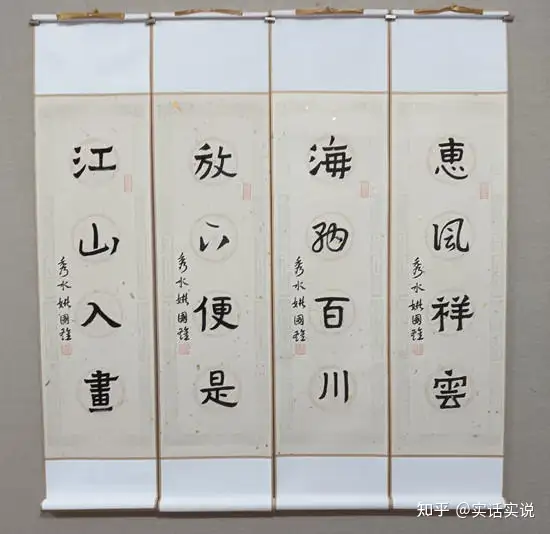 惠風祥雲
秀水姚國瑾
海納百川
秀水姚國瑾
放下便是
秀水姚國瑾
江山入畫
秀水姚國瑾
知乎 @实话实说